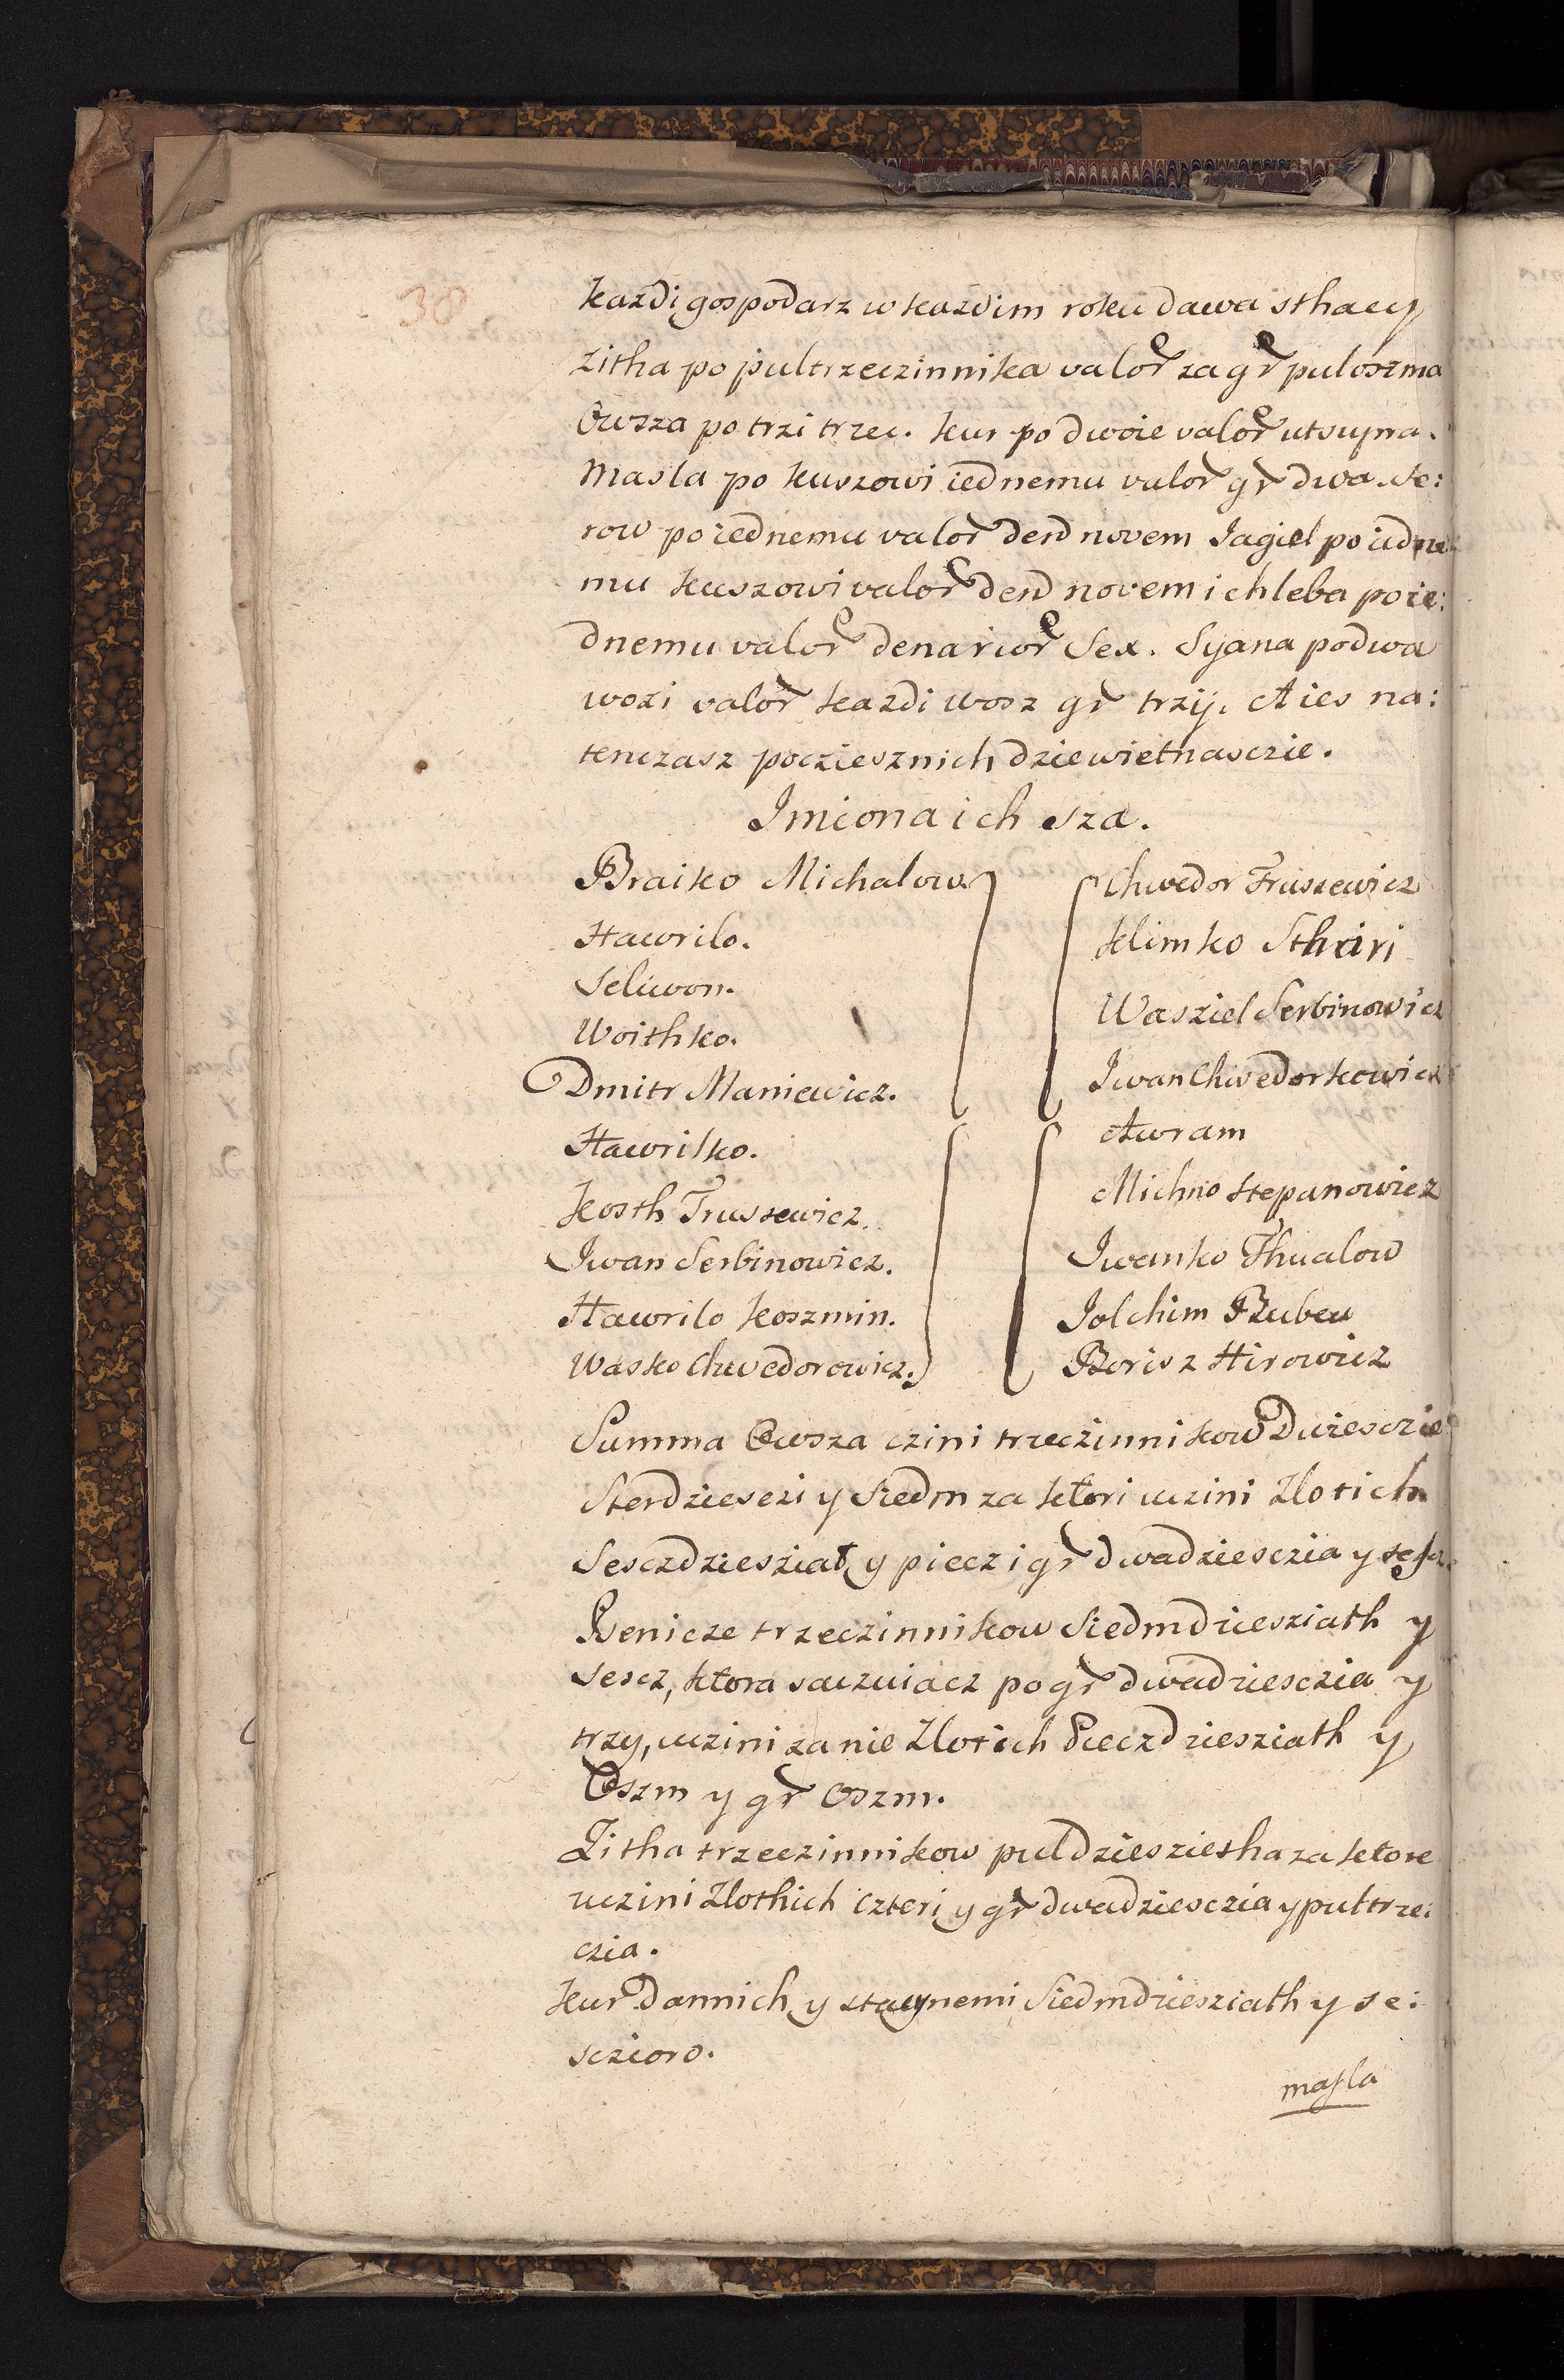 38
każdi gospodarz w każdim roku dawa sthacy
zitha po pultrzeczinnika valor̃ za gr̃ puloszma
Owsza po trzi trzec. kur po dwoie valor̃ utsupra.
Masla po kuszowi iednemu valor̃ gr̃ dwa. se:
row po iednemu valor̃ den̄ novem Jagiel po iedne
mu kuszowi valor̃ den̄ novem i chleba po ie:
dnemu valor̃ denarior̃ Sex. Syana po dwa
wozi valor̃ kazdi wosz gr̃ trzy. A ies na:
tenczasz pocziesznich dziewietnasczie.
Imiona ich sza.
Braiko Michalow.
Hawrilo.
Seliwon.
Woithko.
Dmitr Maniewicz.
Hawrilko.
Kosth Trusewicz.
Iwan Serbinowicz.
Hawrilo Koszmin.
Wasko Chwedorowicz.
Chwedor Truszewicz
Klimko Sthari
Wasziel Serbinowicz
Iwan Chwedorkowicz
Awram
Michno Stepanowicz
Iwanko Thualow
Jolchim Rubeu
Borisz Hirowicz
Summa Owsza czini trzeczinnikow Dwiesczie
Sterdziesczi y siedm za ktori uczini Zlotich
Sesczdziesziat y piecz i gr̃ dwadziesczia y sescz.
Psenicze trzeczinnikow Siedmdziesziath y
sescz, ktora saczuiacz po gr̃ dwadziesczia y
trzy, uczini za nie Zlotich Pieczdziesziath y
Oszm y gr̃ Oszm.
Zitha trzeczinnikow puldzieszietha za ktore
uczini Zlothich czteri y gr̃ dwadziesczia y pultrze:
czia.
Kur Dannich y stacynemi Siedmdziesziath y se:
sczioro.
masla